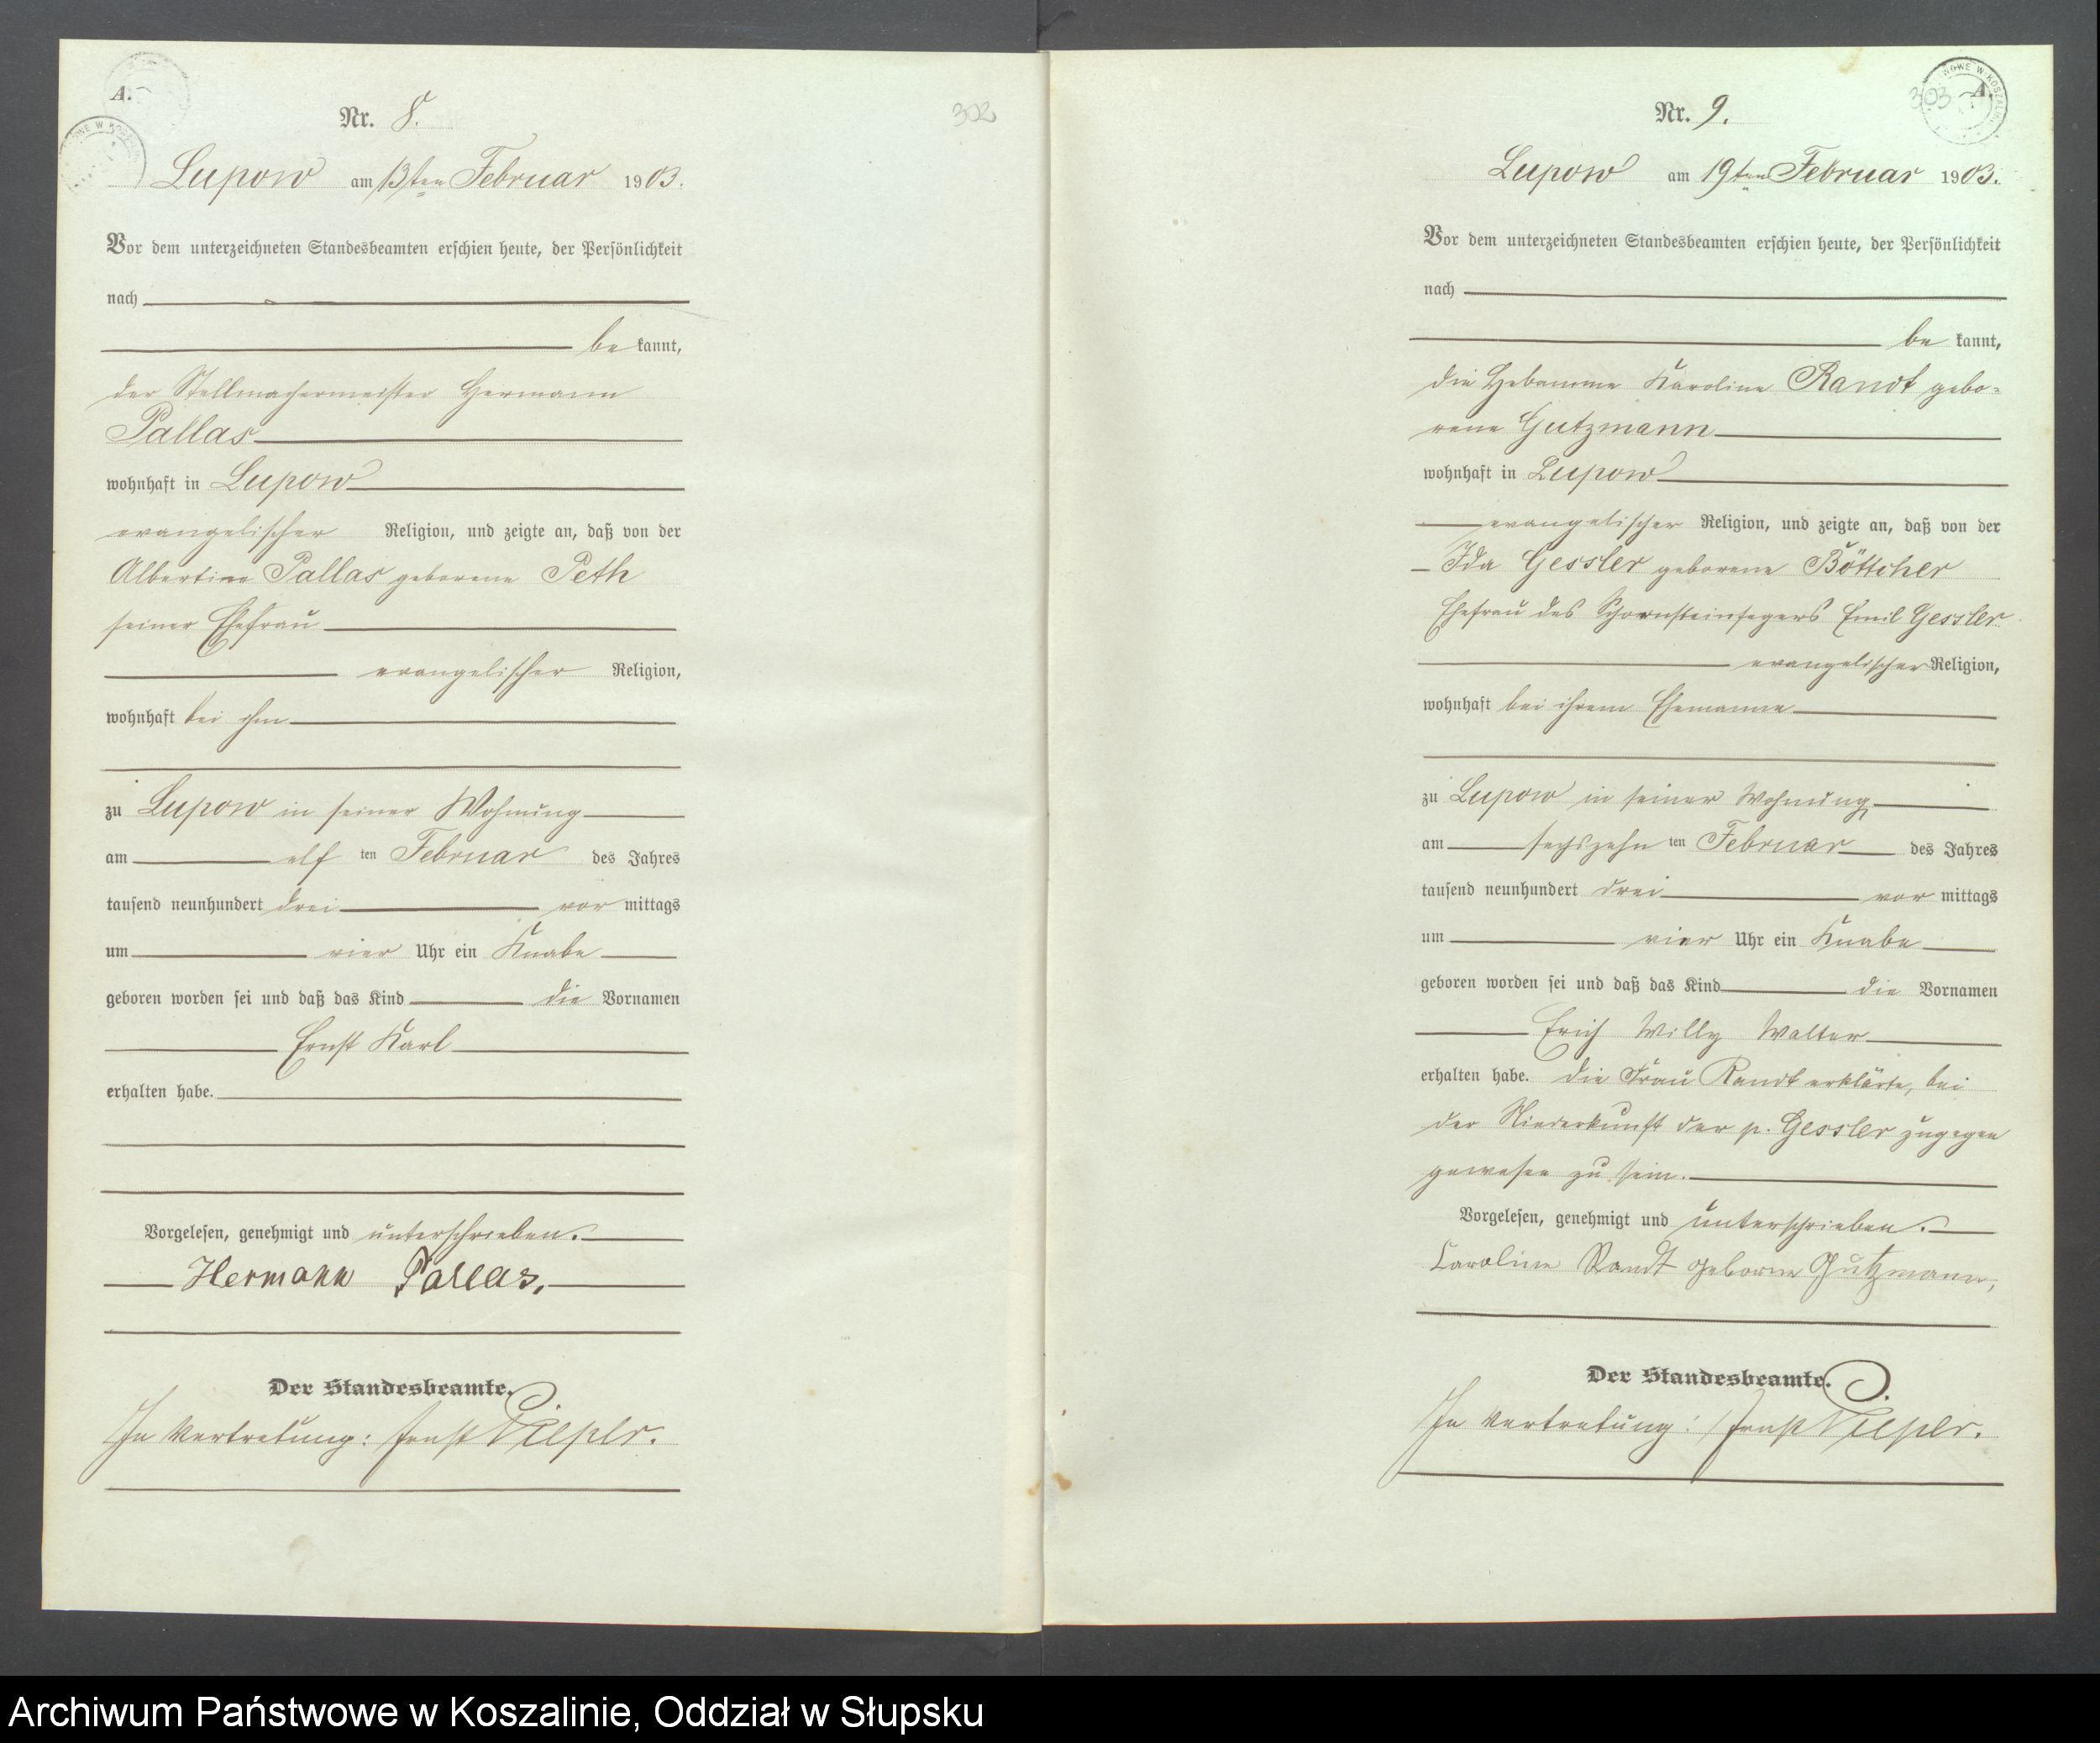 A.
Nr. 8.
302
Lupow am 13ten Februar 1903.
Vor dem unterzeichneten Standesbeamten erschien heute, der Persönlichkeit
nach
be kannt,
der Stellmachermeister Hermann
Pallas
wohnhaft in Lupow
evangelischer Religion, und zeigte an, daß von der
Albertine Pallas geborene Peth
seiner Ehefrau
evangelischer Religion,
wohnhaft bei ihm
zu Lupow in seiner Wohnung
am elf ten Februar des Jahres
tausend neunhundert drei vor mittags
um vier Uhr ein Knabe
geboren worden sei und daß das Kind die Vornamen
Ernst Karl
erhalten habe.
Vorgelesen, genehmigt und unterschrieben.
Hermann Pallas.
Der Standesbeamte.
In Vertretung: Ernst
303 A.
WOWE W KOSZALINIE
Nr. 9.
Lupow am 19ten Februar 1903.
Vor dem unterzeichneten Standesbeamten erschien heute, der Persönlichkeit
nach
be kannt,
die Hebamme Karoline Randt gebo-
rene Gutzmann
wohnhaft in Lupow
evangelischer Religion, und zeigte an, daß von der
Ida Gessler geborene Böttcher
Ehefrau des Schornsteinfegers Emil Gessler
evangelischer Religion,
wohnhaft bei ihrem Ehemanne
zu Lupow in seiner Wohnung
am sechszehn ten Februar des Jahres
tausend neunhundert drei vor mittags
um vier Uhr ein Knabe
geboren worden sei und daß das Kind die Vornamen
Erich Willy Walter
erhalten habe. Die Frau Randt erklärte, bei
der Niederkunft der p. Gessler zugegen
gewesen zu sein.
Vorgelesen, genehmigt und unterschrieben.
Caroline Randt geborne Gutzmann,
Der Standesbeamte.
In Vertretung: Ernst
Archiwum Państwowe w Koszalinie, Oddział w Słupsku